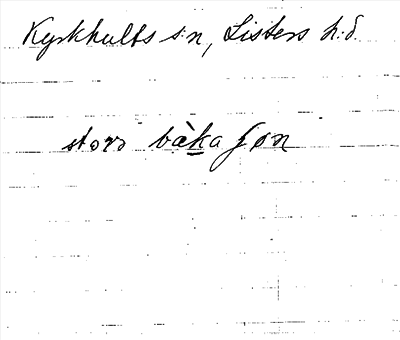 Kyrkhults s:n, Listers h:d.
storo bàka ʃøn